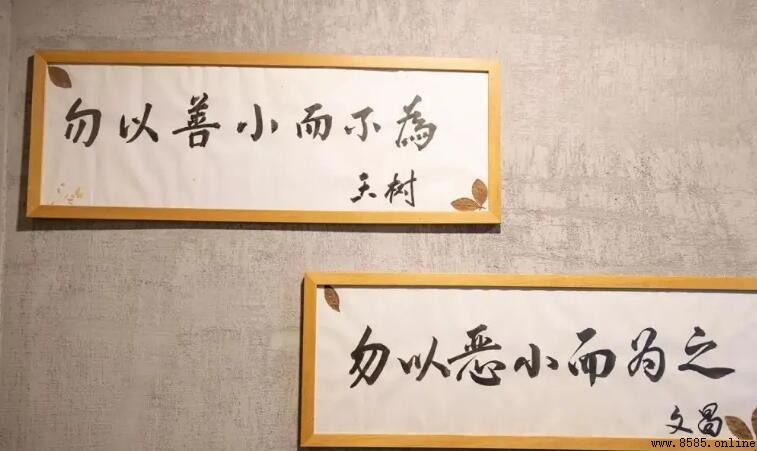 勿以善小而不為
天树
勿以恶小而为之
文昌
www.8585.online